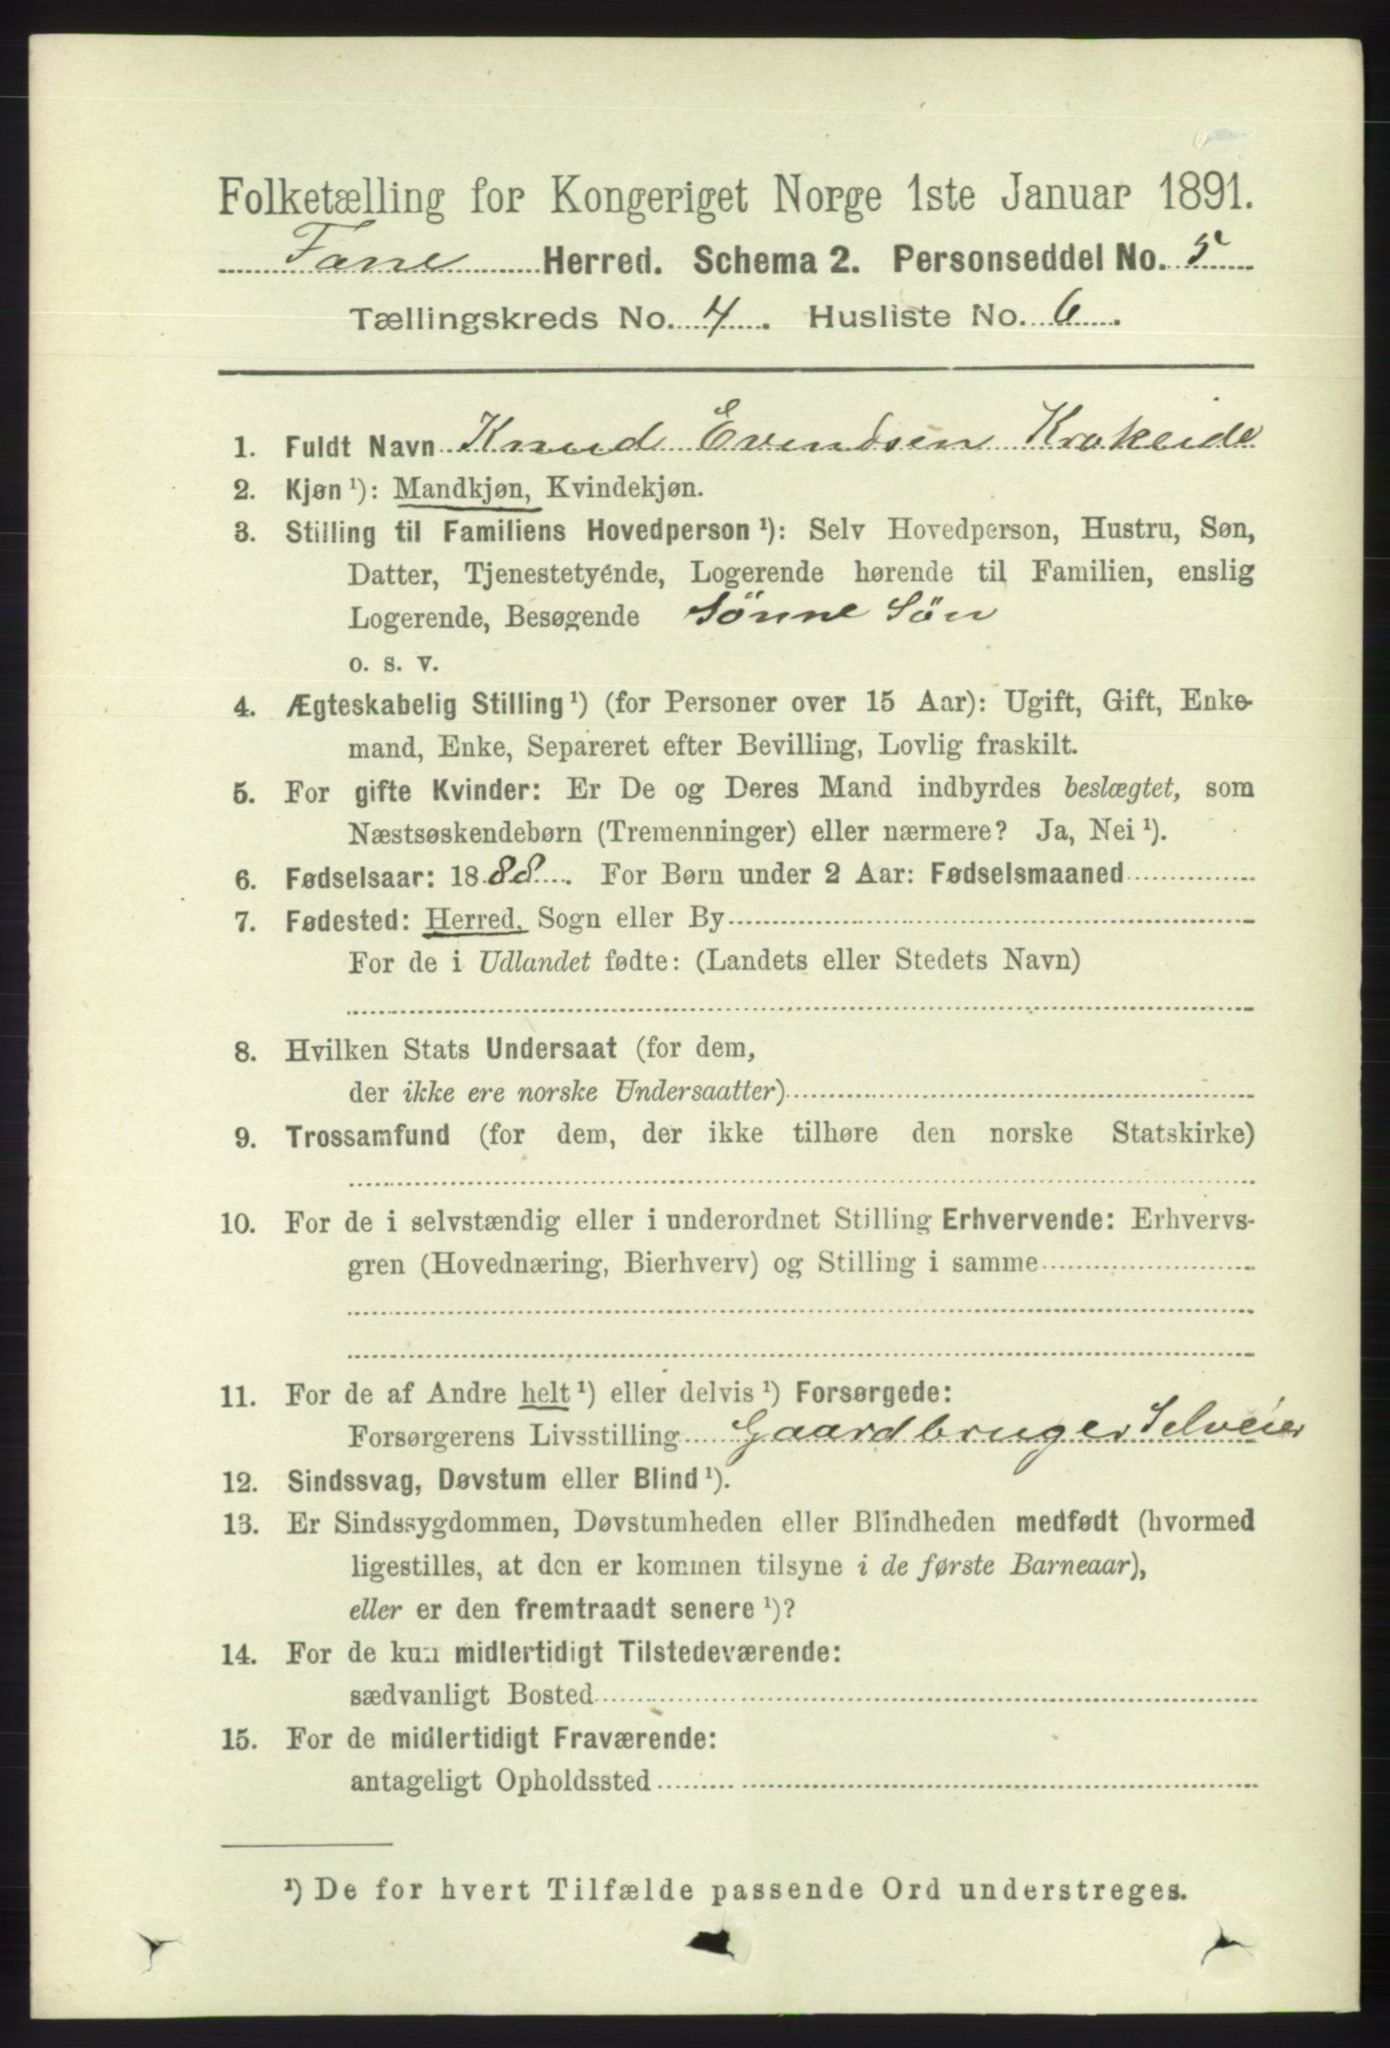 Folketælling for Kongeriget Norge 1ste Januar 1891.
Fane Herred. Schema 2. Personseddel No. 5
Tællingskreds No. 4. Husliste No. 6.
1. Fuldt Navn Knud Evendsen Krokeide
2. Kjøn ¹): Mandkjøn, Kvindekjøn.
3. Stilling til Familiens Hovedperson ¹): Selv Hovedperson, Hustru, Søn,
Datter, Tjenestetyénde, Logerende hørende til Familien, enslig
Logerende, Besøgende Sönne Sön
o. s. v.
4. Ægteskabelig Stilling ¹) (for Personer over 15 Aar): Ugift, Gift, Enke-
mand, Enke, Separeret efter Bevilling, Lovlig fraskilt.
5. For gifte Kvinder: Er De og Deres Mand indbyrdes beslægtet, som
Næstsøskendebørn (Tremenninger) eller nærmere? Ja, Nei ¹).
6. Fødselsaar: 1888. For Børn under 2 Aar: Fødselsmaaned
7. Fødested: Herred, Sogn eller By
For de i Udlandet fødte: (Landets eller Stedets Navn)
8. Hvilken Stats Undersaat (for dem,
der ikke ere norske Undersaatter)
9. Trossamfund (for dem, der ikke tilhøre den norske Statskirke)
10. For de i selvstændig eller i underordnet Stilling Erhvervende: Erhvervs-
gren (Hovednæring, Bierhverv) og Stilling i samme
11. For de af Andre helt ¹) eller delvis ¹) Forsørgede:
Forsørgerens Livsstilling Gaardbruger Selveier
12. Sindssvag, Døvstum eller Blind ¹).
13. Er Sindssygdommen, Døvstumheden eller Blindheden medfødt (hvormed
ligestilles, at den er kommen tilsyne i de første Barneaar),
eller er den fremtraadt senere ¹)?
14. For de kun midlertidigt Tilstedeværende:
sædvanligt Bosted
15. For de midlertidigt Fraværende:
antageligt Opholdssted
¹) De for hvert Tilfælde passende Ord understreges.